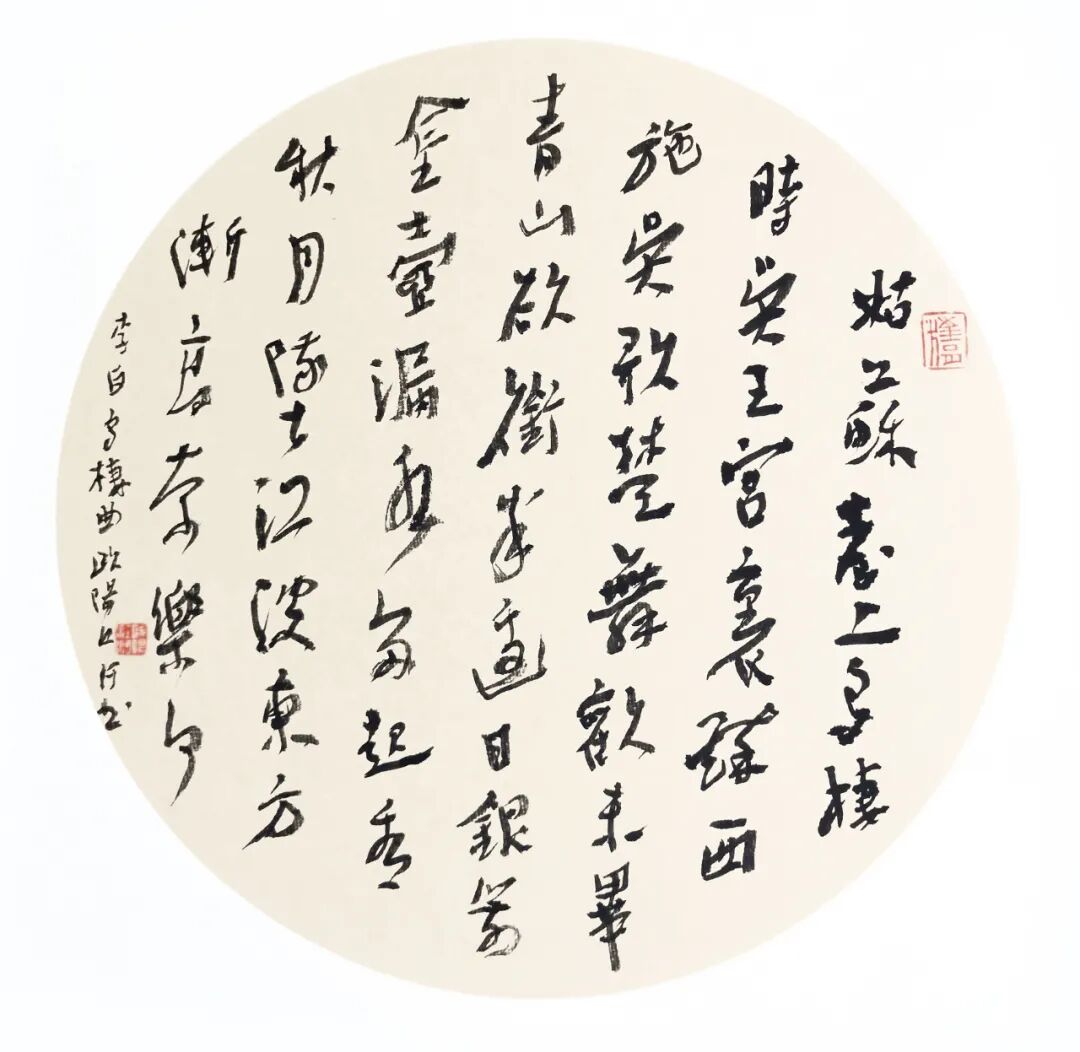 姑蘇臺上烏棲
時吳王宮裏醉西
施吳歌楚舞歡未畢
青山欲銜半邊日銀箭
金壺漏水多起看
秋月墜江波東方
漸高奈樂何
李白烏棲曲歐陽江河書